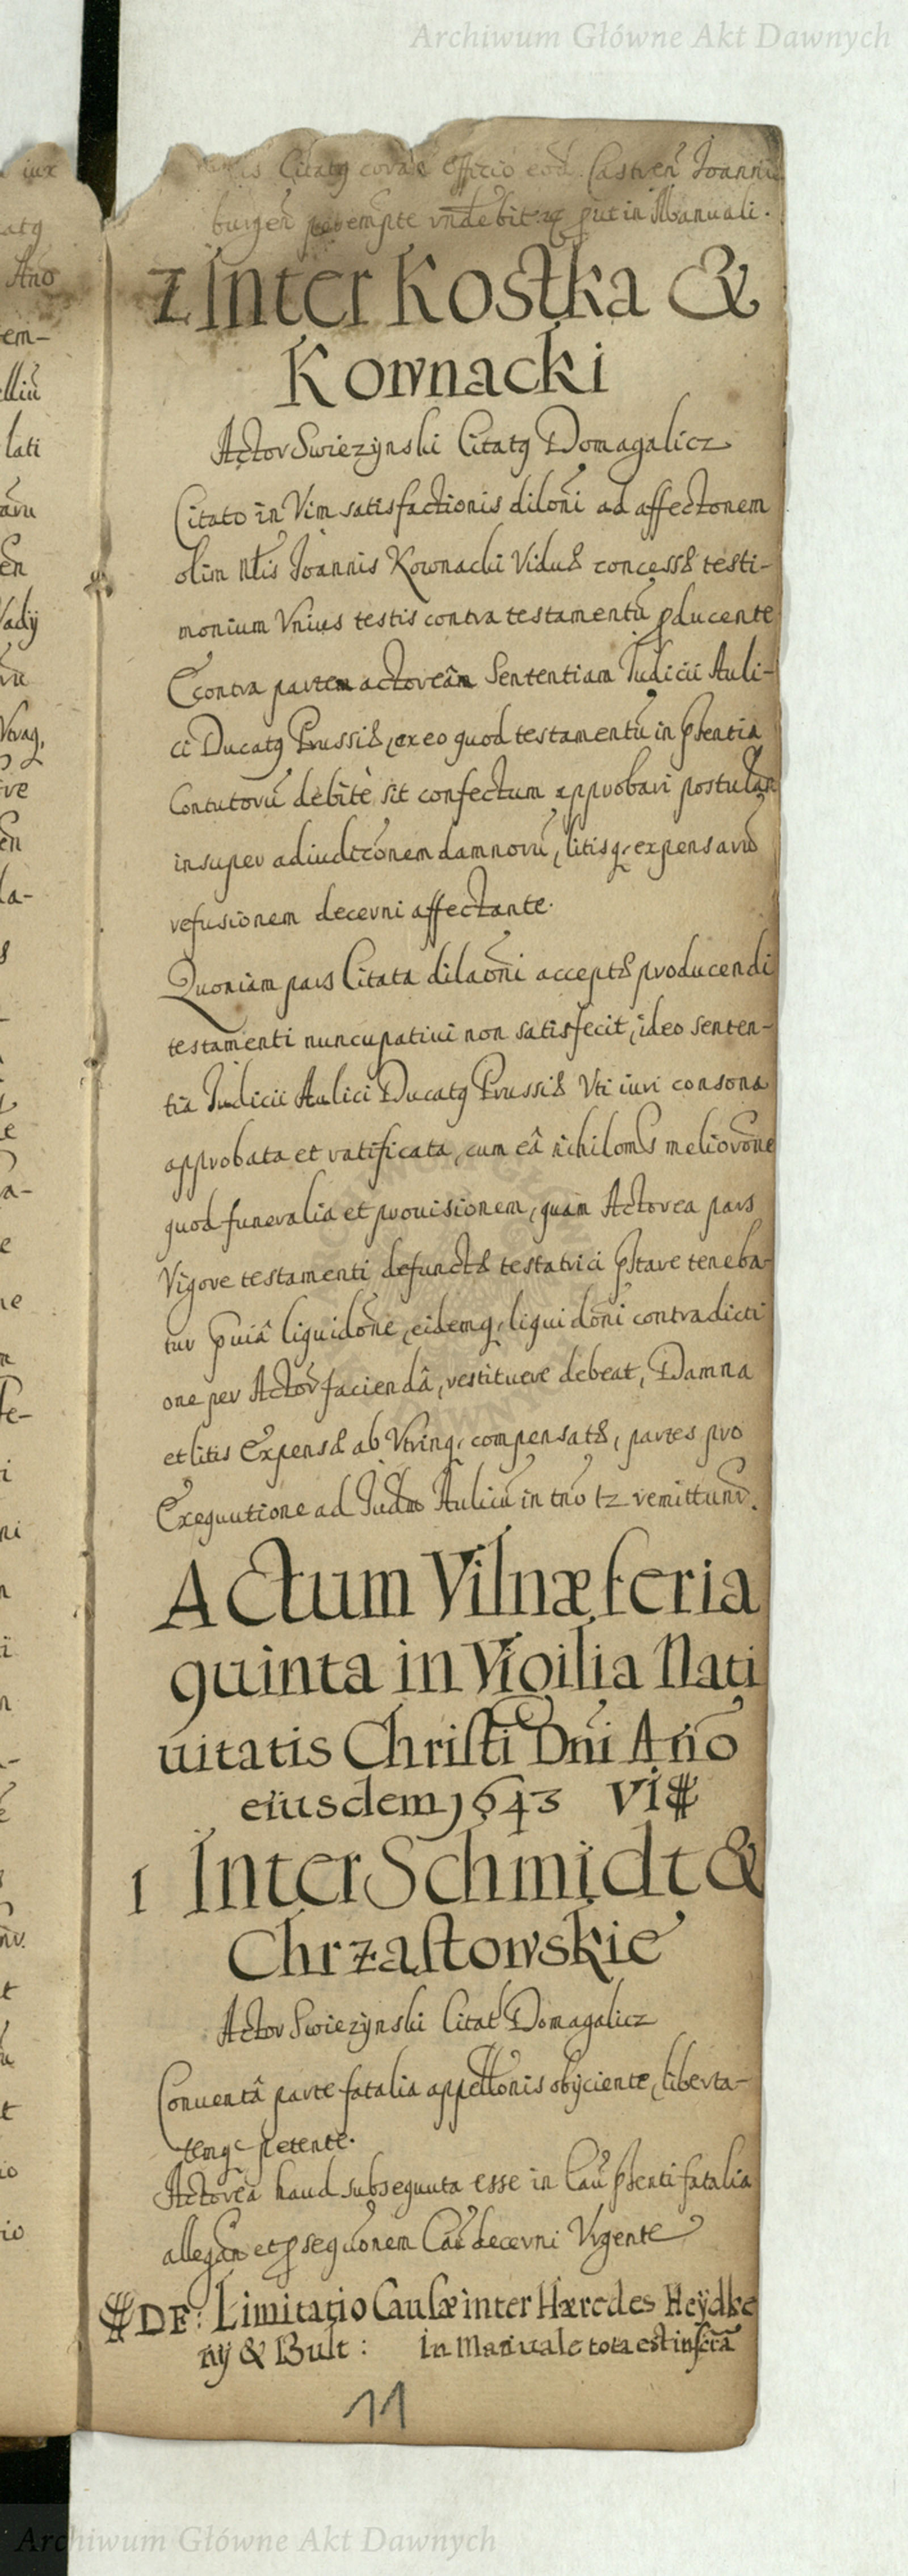 Archiwum Główne Akt Dawnych
Citatq coram Officio eod. Castren Joannis
burgen perempte vndebitaq put in Manuali.
2 Inter Kostka &
Kownacki
Actor Swiezynski Citatq Domagalicz
Citato in Vim satisfactionis diloni ad affectonem
olim Nlis Joannis Kownacki Viduæ concessæ testi-
monium Vnius testis contra testamentū producente
Econtra partem actoreām Sententiam Judicii Auli-
ci Ducatq Prussiæ, ex eo quod testamentū in pſentia
Contutorū debitè sit confectum approbari postulan
insuper adiudiconem damnorū, litisq, expensarū
refusionem decerni affectante.
Quoniam pars Citata dilaoni acceptæ producendi
testamenti nuncupatiui non satisfecit, ideo senten-
tia Judicii Aulici Ducatq Prussiæ Vti iuri consona
approbata et ratificata, cum eâ nihilomq meliorone
quod funeralia et prouisionem, quam Actorea pars
Vigore testamenti defunctæ testatrici pſtare teneba-
tur puiâ liquidone, eidemq, liquidoni contradicti
one per Actor faciendâ, restituere debeat, Damna
et litis Expensæ ab Vtrinq, compensatæ, partes pro
Exequutione ad Judm Aulicū in tno tz remittunr.
Actum Vilnæ feria
quinta in Vigilia Nati
uitatis Christi Dni Ano
eiusdem 1643 VI
1 Inter Schmidt &
Chrząstowskie
Actor Swiezynski Citat Domagalicz
Conuentâ parte fatalia appellonis obijciente, liberta-
temqe petente.
Actorea haud subsequuta esse in Cau pſenti fatalia
allegan et psequonem Cau decerni Vrgente
DF: Limitatio Causæ inter Hæredes Heydke
nij & Bult: in Manuale tota est inscrta
11
Archiwum Główne Akt Dawnych